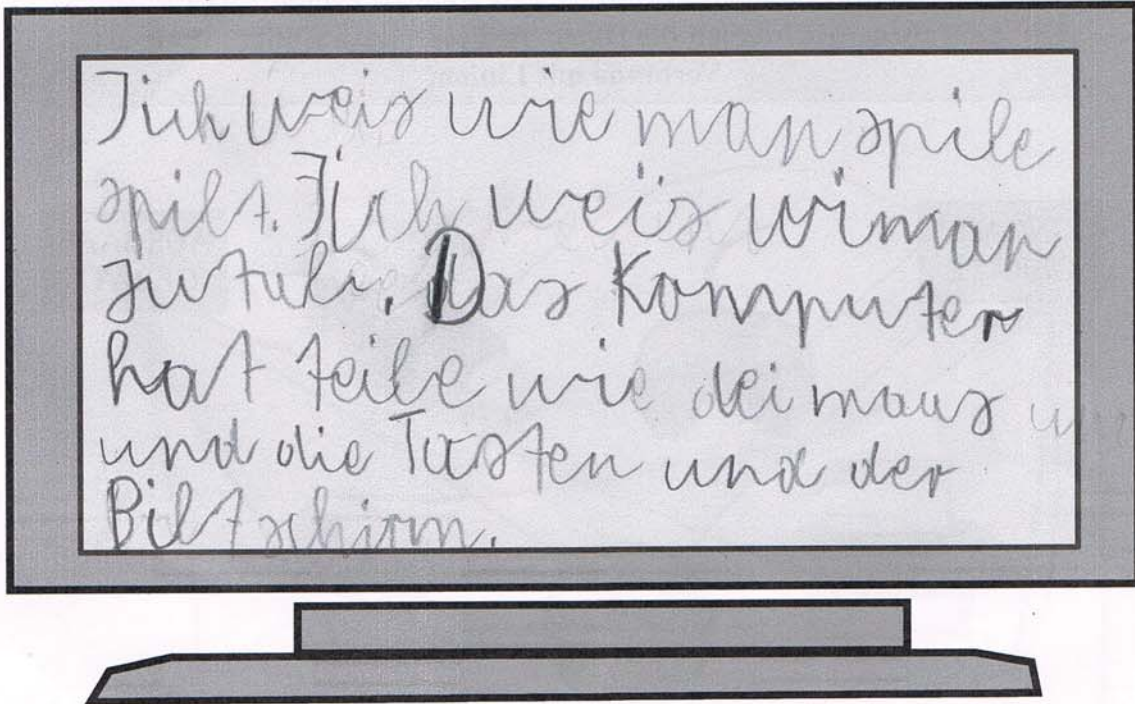 Jich weis wie man spile
spilt. Jich weis wiman
Das Komputer
hat teile wie dei maus
und die Tasten und der
Biltschirm.